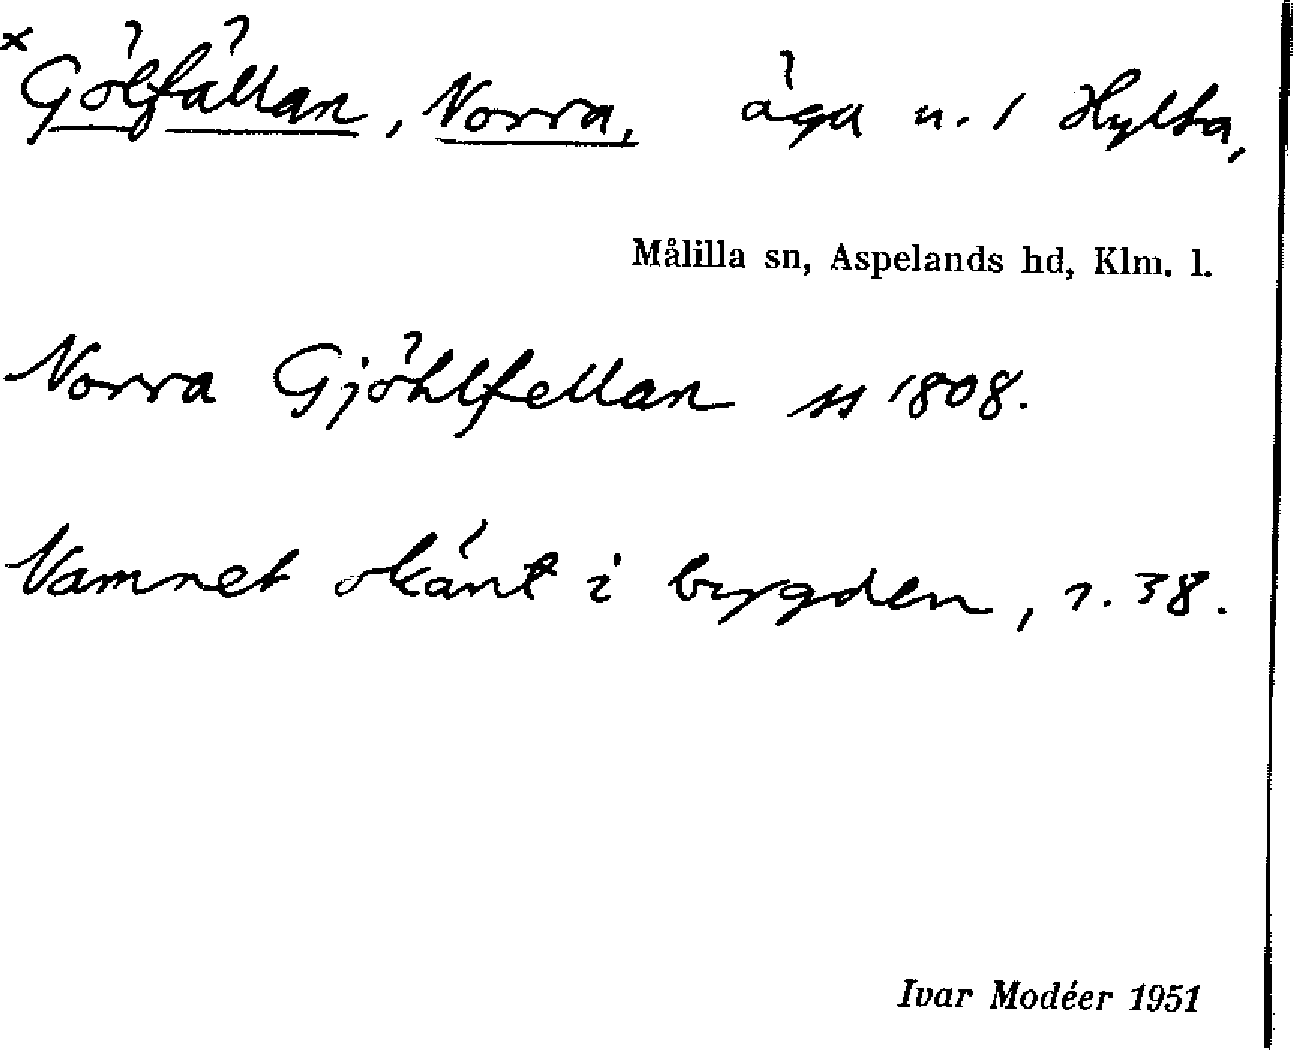 × Gölfällan, Norra, äga n. 1 Hylta,
Målilla sn, Aspelands hd, Klm. l.
Norra Gjöhlfellan ss 1808.
Namnet okänt i bygden, 1. 38.
Ivar Modéer 1951